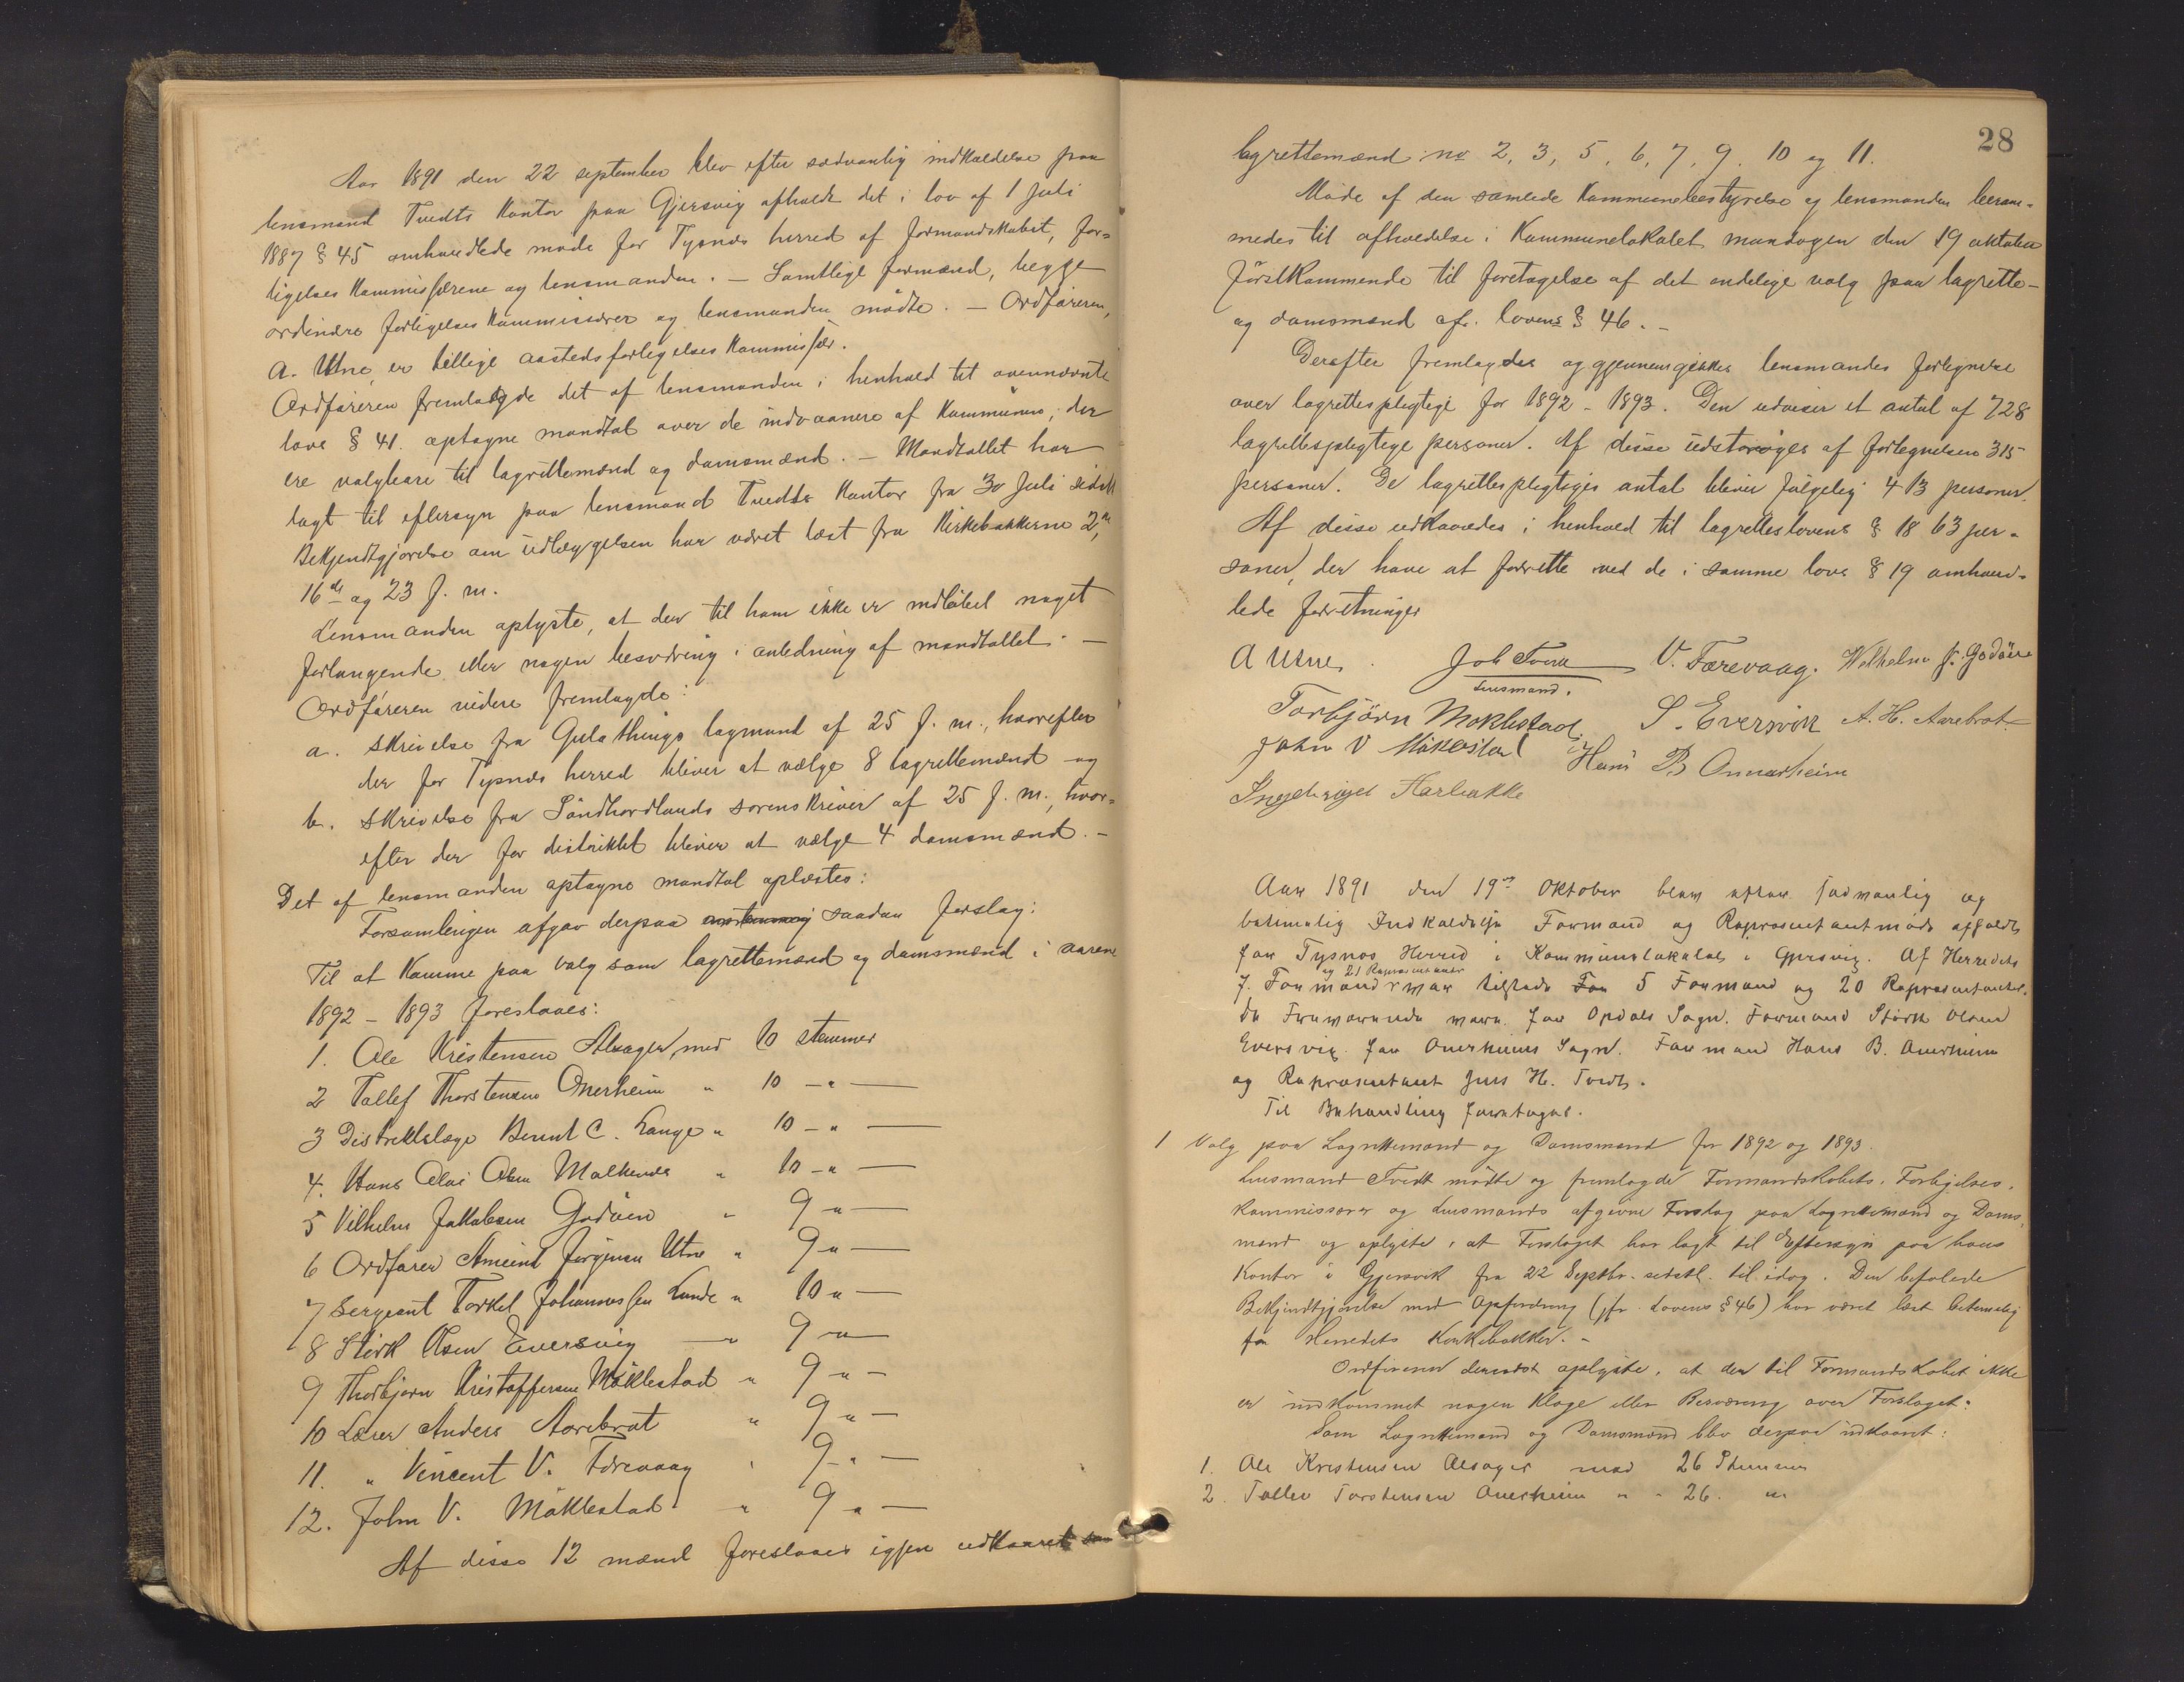 Aar 1891 den 22 september blev efter sædvanlig indkaldelse paa
lensmand Tvedts kontor paa Gjersvig afholdt det i lov af 1 juli
1887 § 45 omhandlede møde for Tysnæs herred af formandskabet, for=
ligelses kommissærene og lensmanden. – Samtlige formænd, begge
ordinære forligelseskommissærer og lensmanden mødte. – Ordføreren,
A. Utne, er tillige aastedsforligelseskommissær.
Ordføreren fremlagde det af lensmanden i henhold til ovennævnte
lovs § 41. optagne mandtal over de indvaanere af kommunen, der
ere valgbare til lagrettemænd og domsmænd. – Mandtallet har
lagt til eftersyn paa lensmand Tvedts kontor fra 30 juli sidstl
Bekjendtgjørelse om udlæggelsen har været læst fra kirkebakkerne 2den,
16de og 23 f. m.
Lensmanden oplyste, at der til ham ikke er indløbet noget
forlangende eller nogen besværing i anledning af mandtallet. –
Ordføreren videre fremlagde:
a. skrivelse fra Gulathings lagmand af 25 f. m., hvorefter
der for Tysnæs herred bliver at vælge 8 lagrettemænd og
b. skrivelse fra Søndhordlands sorenskriver af 25 f. m., hvor=
efter der for distriktet bliver at vælge 4 domsmænd. –
Det af lensmanden optagne mandtal oplæstes:
Forsamlingen afgav derpaa saadan forslag:
Til at komme paa valg som lagrettemænd og domsmænd i aarene
1892 – 1893 foreslaaes:
1. Ole Kristensen Alsager med 10 stemmer
2 Tollef Thorstensen Onerheim " 10 – " –
3 Distriktslæge Bernt C. Lange " 10 – " –
4. Hans Olai Olsen Malkenes " 10 – " –
5 Vilhelm Jakobsen Godøen " 9 " –
6 Ordfører Amund Jørgensen Utne " 9 " –
7 Sergeant Torkel Johannessen Lunde " 10 " –
8 Størk Olsen Eversvig – " 9 " –
9 Thorbjørn Kristoffersen Møklestad " 9 " –
10 Lærer Anders Aarebrot " 9 " –
11. " Vincent V. Færevaag " 9 " –
12. John V. Møklestad " 9 " –
Af disse 12 mænd foreslaaes igjen udkaaret som
28
lagrettemænd no 2, 3, 5, 6, 7, 9. 10 og 11.
Møde af den samlede kommunebestyrelse og lensmanden beram=
medes til afholdelse i Kommunelokalet mandagen den 19 oktober
førstkommende til foretagelse af det endelige valg paa lagrette-
og domsmænd efr. lovens § 46. –
Derefter fremlagdes og gjennemgikkes lensmandes fortegnelse
over lagrettespligtige for 1892 – 1893. Den udviser et antal af 728
lagrettespligtige personer. Af disse udstrøges af fortegnelsen 315
personer. De lagrettespligtiges antal bliver følgelig 413 personer.
Af disse udkaaredes i henhold til lagretteslovens § 18 63 per=
soner, der have at forrette ved de i samme lovs § 19 omhand=
lede forretninger
A Utne. Joh Tvedt V. Færevaag. Wilhelm J. Godøen
Lensmand.
Torbjørn Møklestad. S. Eversvik A. H. Aarebrot
John V Møklestad Hans B Onnarheim
Ingebrigt Harbakke
Aar 1891 den 19de Oktober blev efter sædvanlig og
betimelig Indkaldelse Formand og Repræsentantmøde afholdt
for Tysnæs Herred i Kommunelokalet i Gjersvig. Af Herredets
og 21 Repræsentanter
7. Formænd var tilstede For 5 Formænd og 20 Repræsentanter.
de Fraværende være. for Opdals Sogn. Formand Størk Olsen
Eversvig. for Onerheims Sogn. Formand Hans B. Onerheim
og Repræsentant Jens H. Tvedt.
Til Behandling foretoges.
1 Valg paa Lagrettemænd og Domsmænd for 1892 og 1893.
Lensmand Tvedt mødte og fremlagde Formandskabets, Forligelses=
kommissærer og Lensmands afgivne Forslag paa Lagrettemænd og Doms=
mænd og oplyste, at Forslaget har lagt til Eftersyn paa hans
Kontor i Gjersvik fra 22 Septbr. sidstl. til idag. Den befalede
Bekjendtgjørelse med Opfordring (jfr. Lovens § 46) har været læst betimelig
fra Herredets Kirkebakker. –
Ordføreren dernæst oplyste, at der til Formandskabet ikke
er indkommet nogen Klage eller Besværing over Forslaget:
Som Lagrettemænd og Domsmænd blev derpaa udkaaret:
1. Ole Kristensen Alsager med 26 Stemmer
2. Tollev Torstensen Onerheim " " 26. "